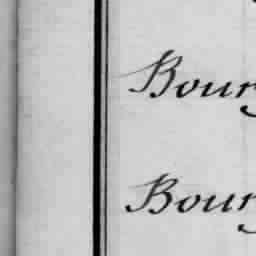 Bour
Bour